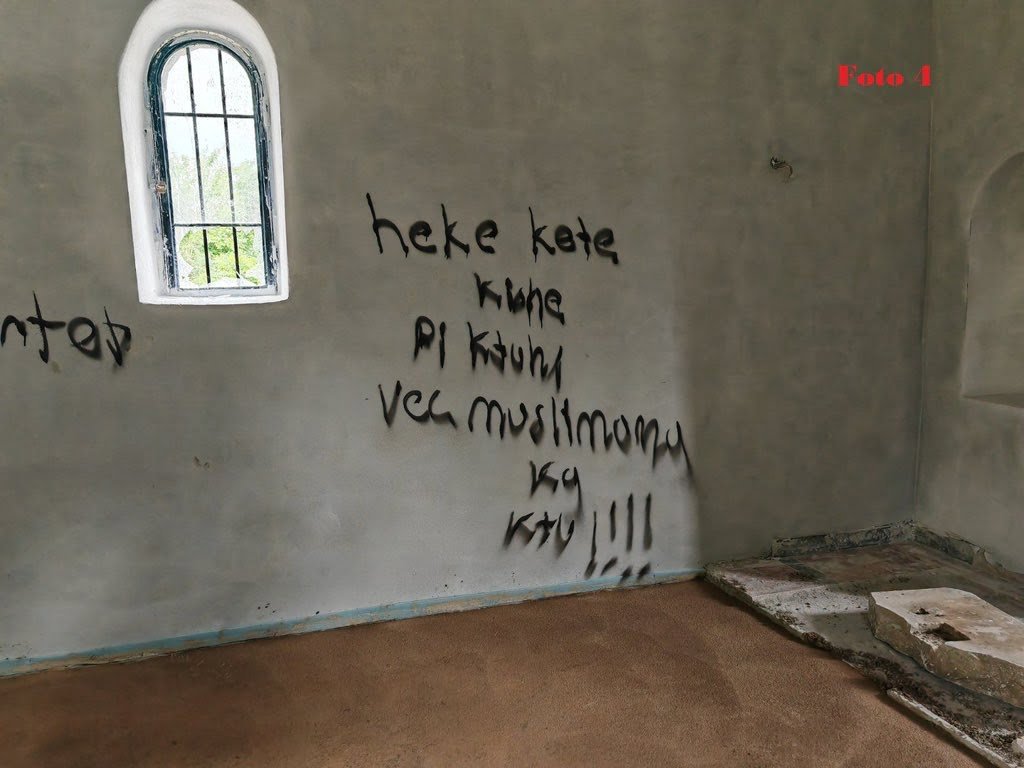 Foto 4
heke kete
kishe
pi ktuhi
vec muslimana
ka
ktu !!!!